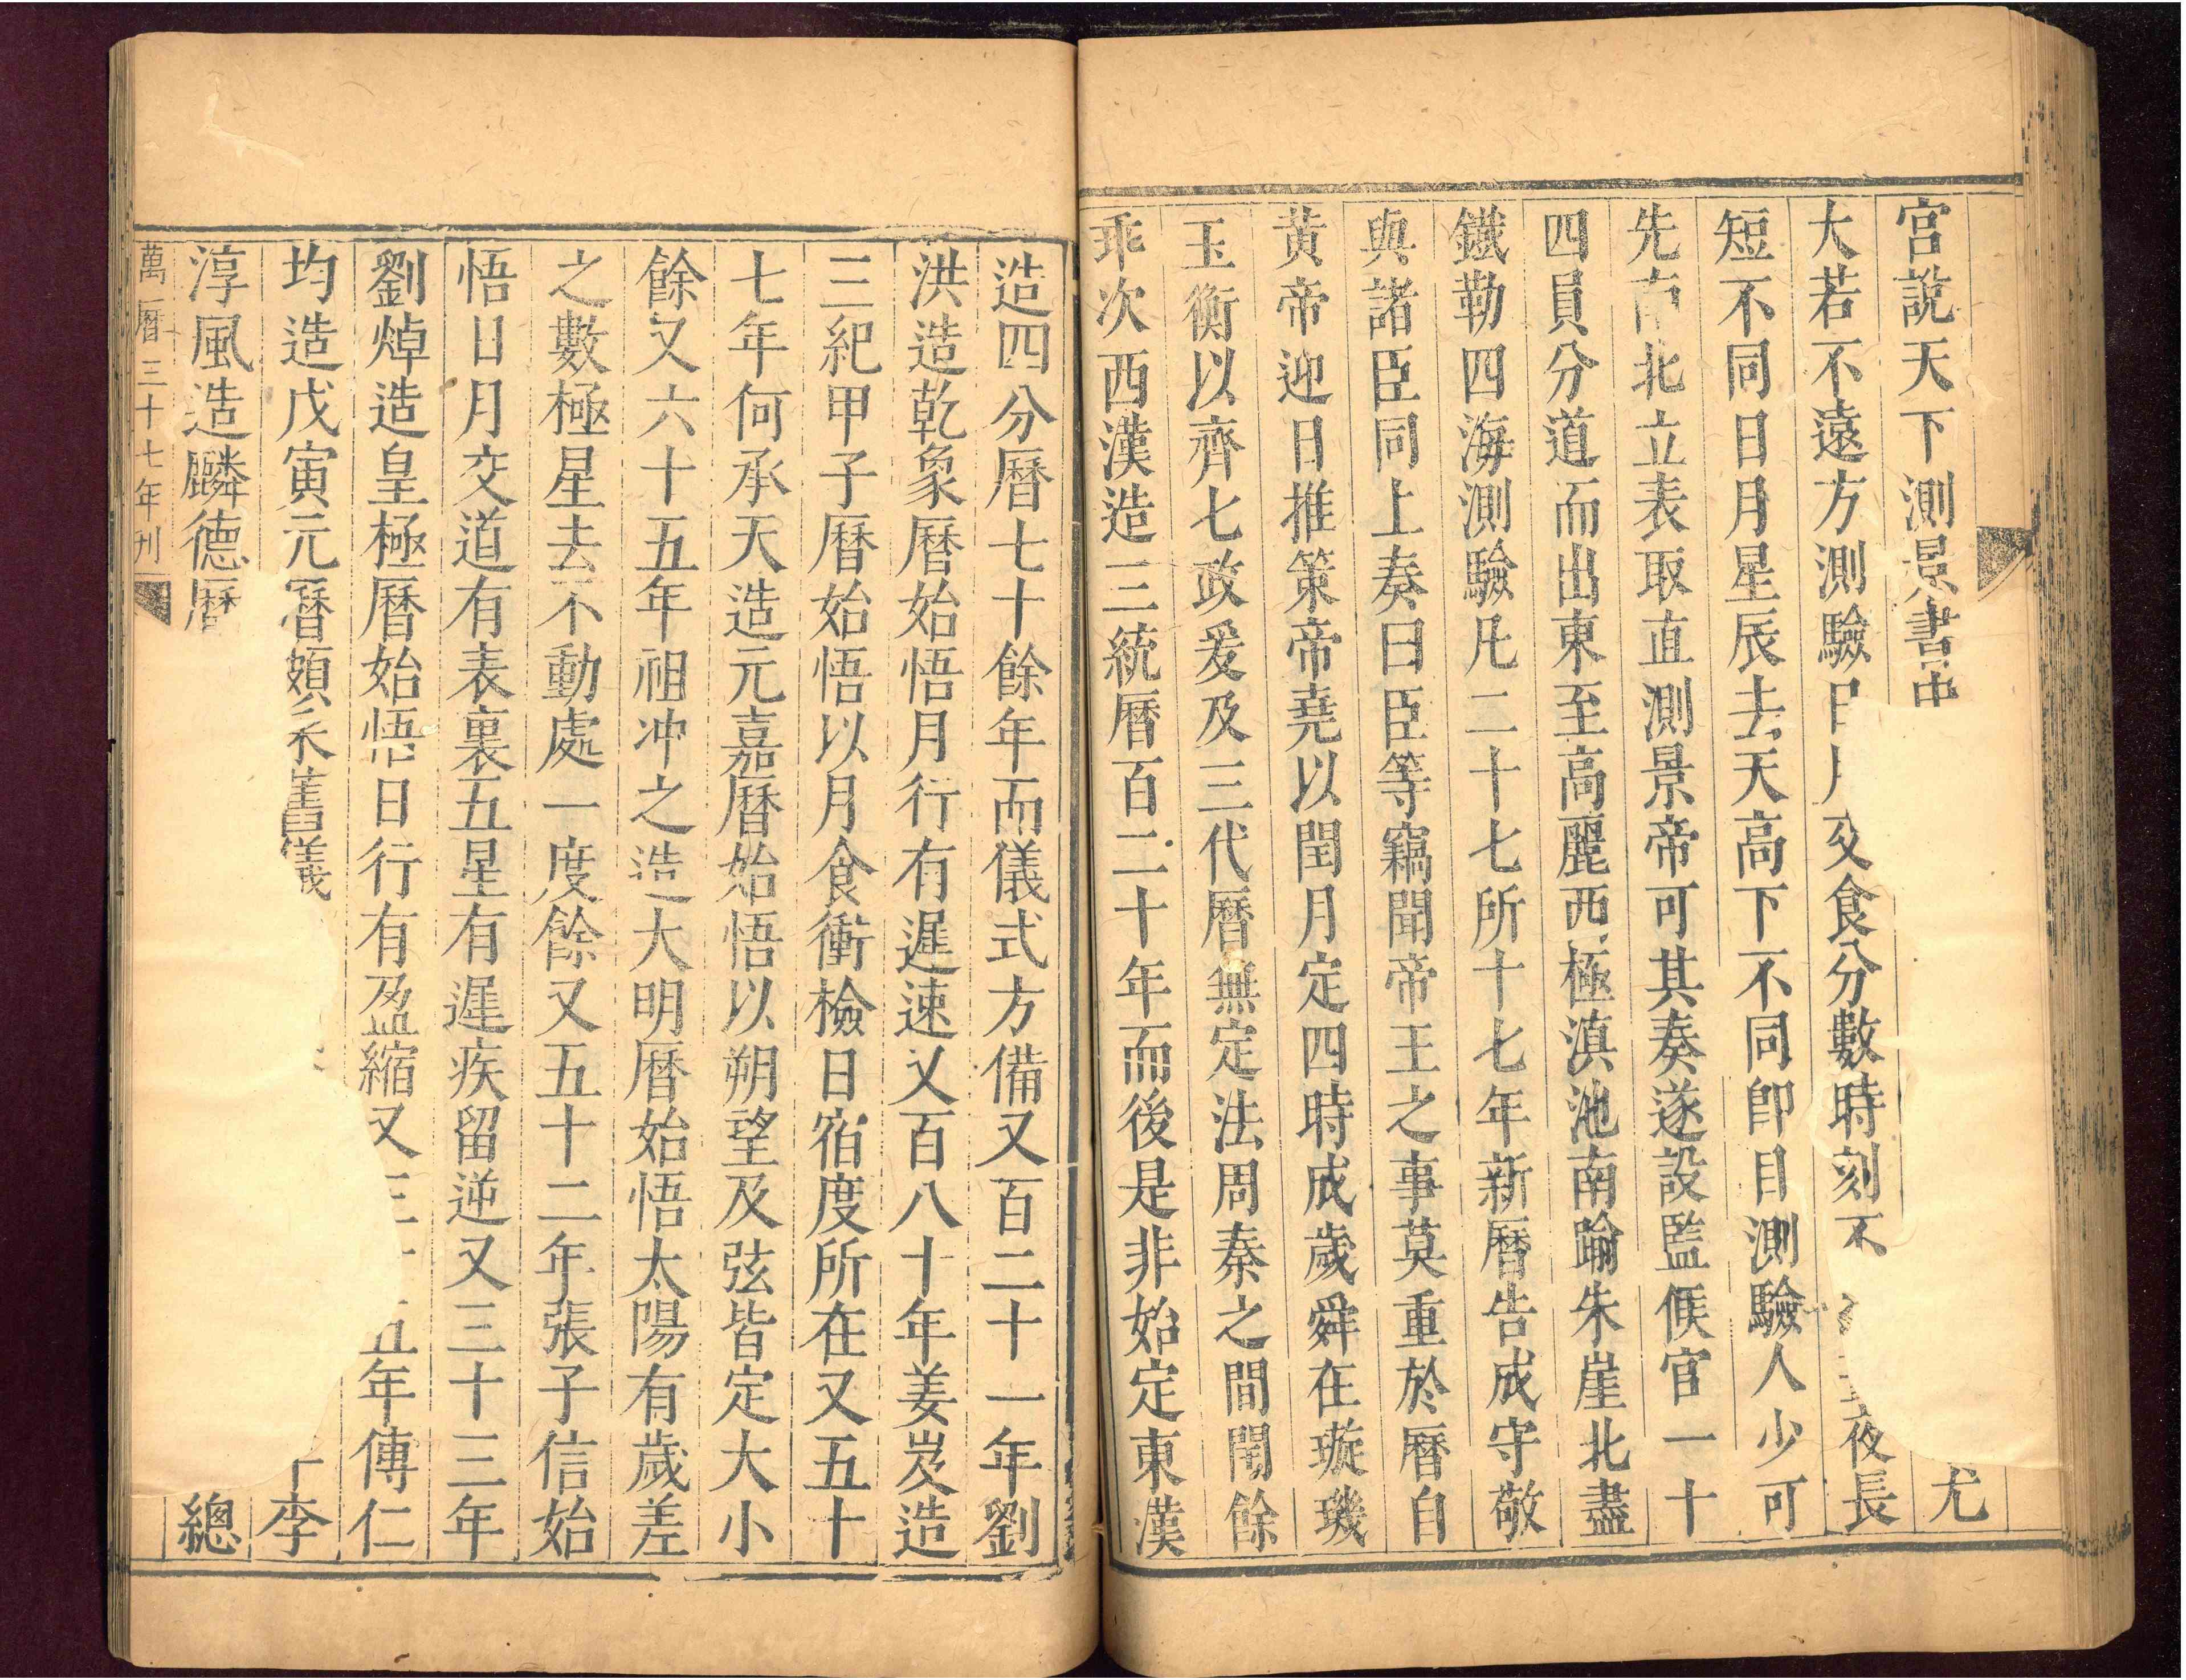 宮說天下測景書中
尤
大若不遠方測驗日月交食分數時刻不
夜長
短不同日月星辰去天高下不同卽目測驗人少可
先南北立表取直測景帝可其奏遂設監候官一十
四員分道而出東至高麗西極滇池南踰朱崖北盡
鐵勒四海測驗凡二十七所十七年新曆告成守敬
與諸臣同上奏曰臣等竊聞帝王之事莫重於曆自
黄帝迎日推策帝堯以閏月定四時成歲舜在璇璣
玉衡以齊七政爰及三代曆無定法周秦之間閏餘
乖次西漢造三統曆百二十年而後是非始定東漢
造四分曆七十餘年而儀式方備又百二十一年劉
洪造乾象曆始悟月行有遲速又百八十年姜岌造
三紀甲子曆始悟以月食衝檢日宿度所在又五十
七年何承天造元嘉曆始悟以朔望及弦皆定大小
餘又六十五年祖冲之造大明曆始悟太陽有歲差
之數極星去不動處一度餘又五十二年張子信始
悟日月交道有表裏五星有遲疾留逆又三十三年
劉焯造皇極曆始悟日行有盈縮又三十五年傳仁
均造戊寅元曆頗采舊儀
李
淳風造麟德曆
總
萬曆三十七年刊